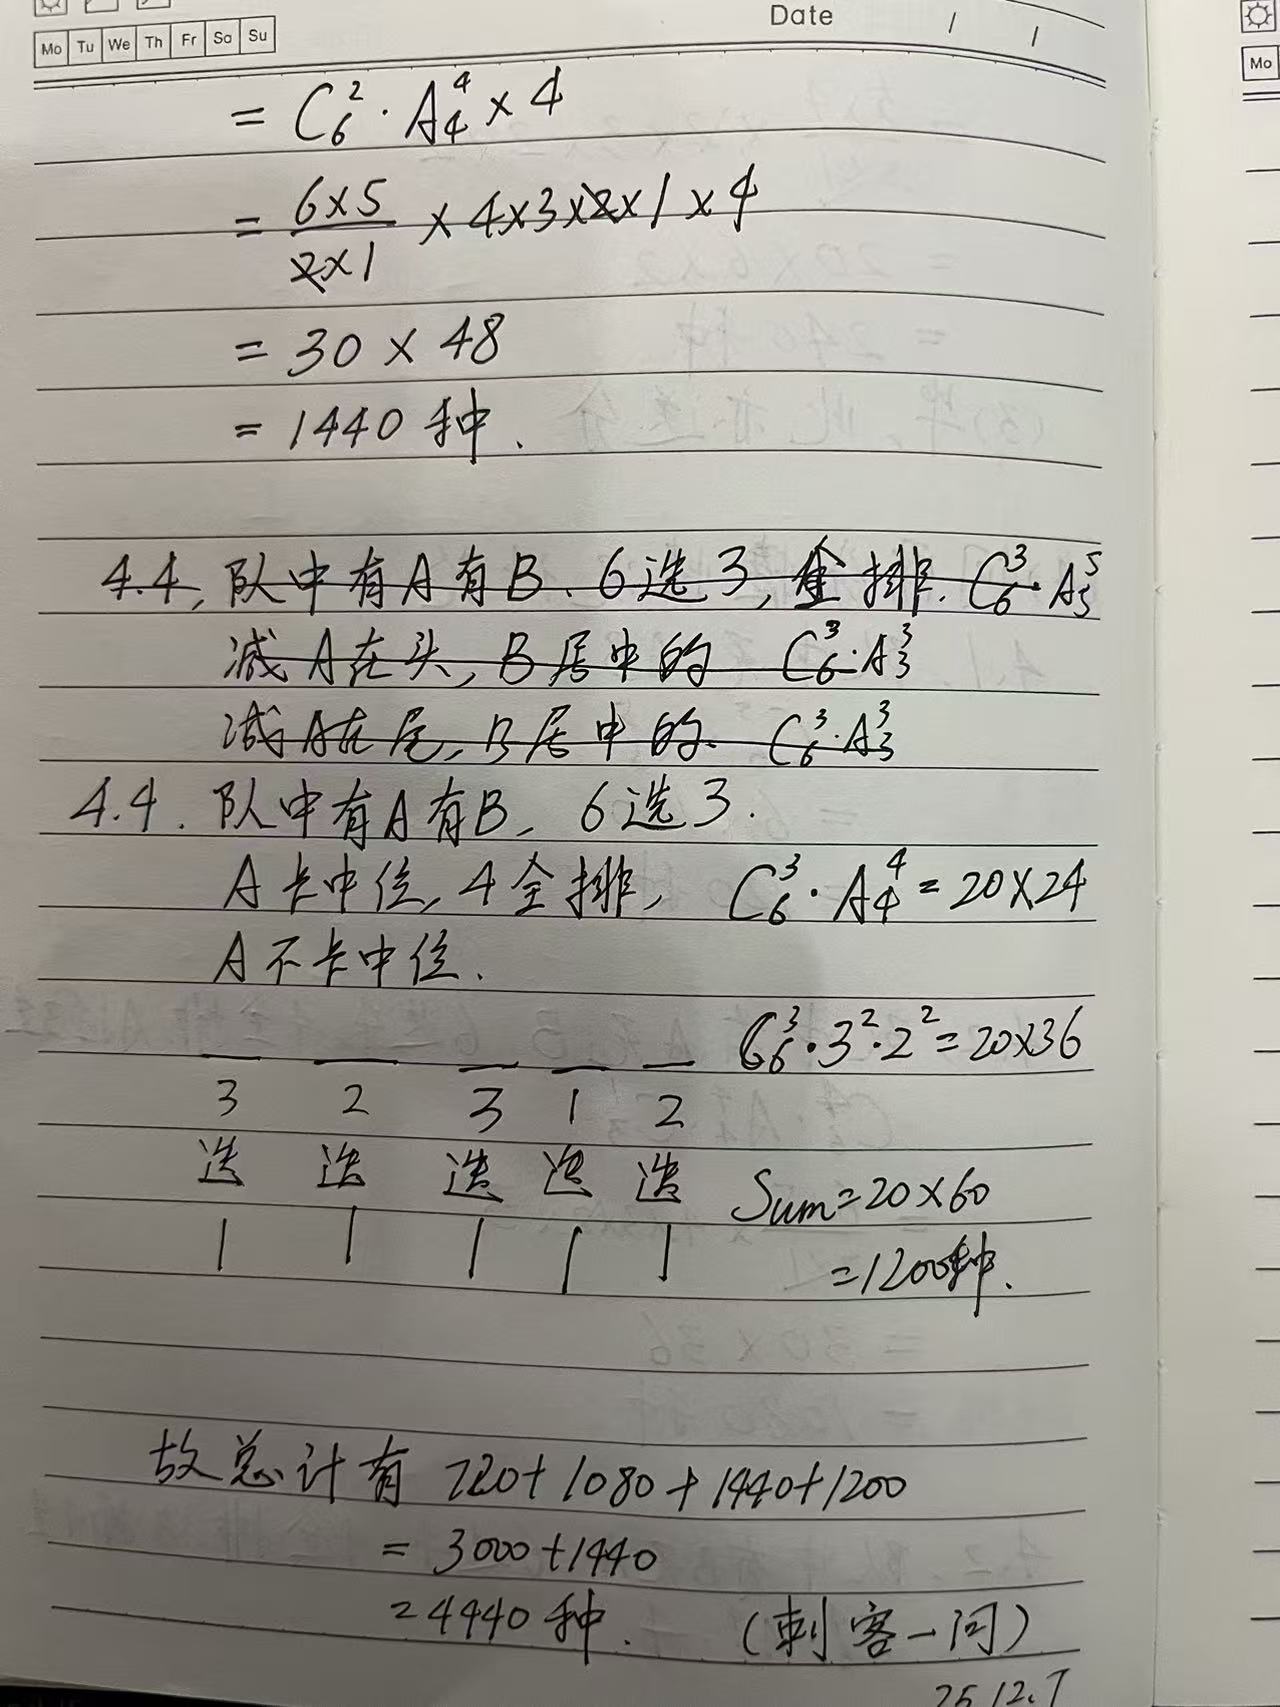 Date / /
Mo Tu We Th Fr Sa Su
Mo
= C₆² · A₄⁴ × 4
= 6×5/2×1 × 4×3×2×1 × 4
= 30 × 48
= 1440 种.
4.4, 队中有A有B、6选3, 全排. C₆³·A₅⁵
减A在头, B居中的 C₆³·A₃³
减A在尾, B居中的. C₆³·A₃³
4.4. 队中有A有B, 6选3.
A卡中位, 4全排, C₆³·A₄⁴=20×24
A不卡中位.
C₆³·3²·2²=20×36
3 2 3 1 2
选 选 选 选 选 Sum=20×60
| | | | | =1200种.
故总计有 720+1080+1440+1200
= 3000+1440
=4440种. (刺客一问)
25.12.7